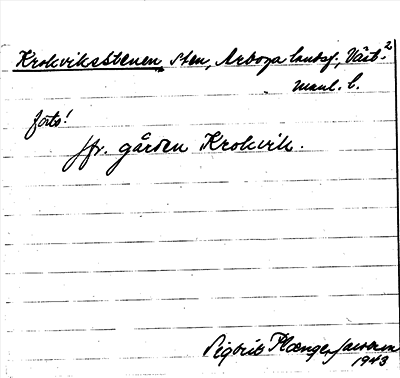 Krokviksstenen, sten, Arboga landsf., Väst-²
manl. l.
förts!
jfr. gården Krokvik.
Sigbrit Plænge Jacobson
1943